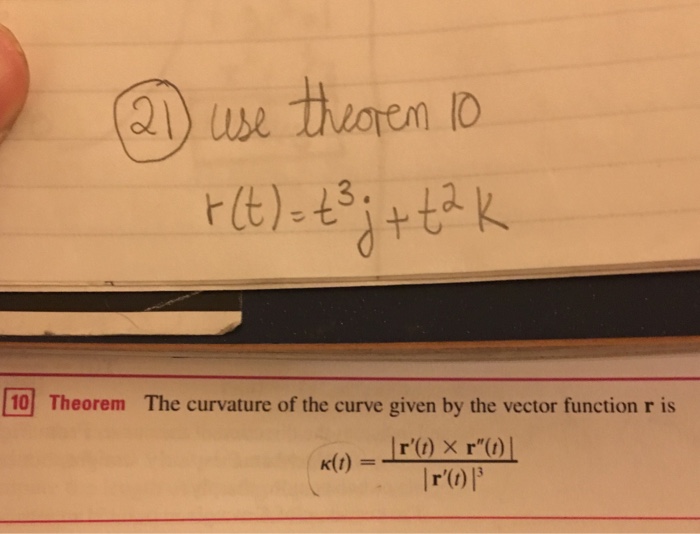 21 use theorem 10
r(t)=t³j+t²k
10 Theorem The curvature of the curve given by the vector function r is
κ(t) = |r′(t) × r″(t)| / |r′(t)|³